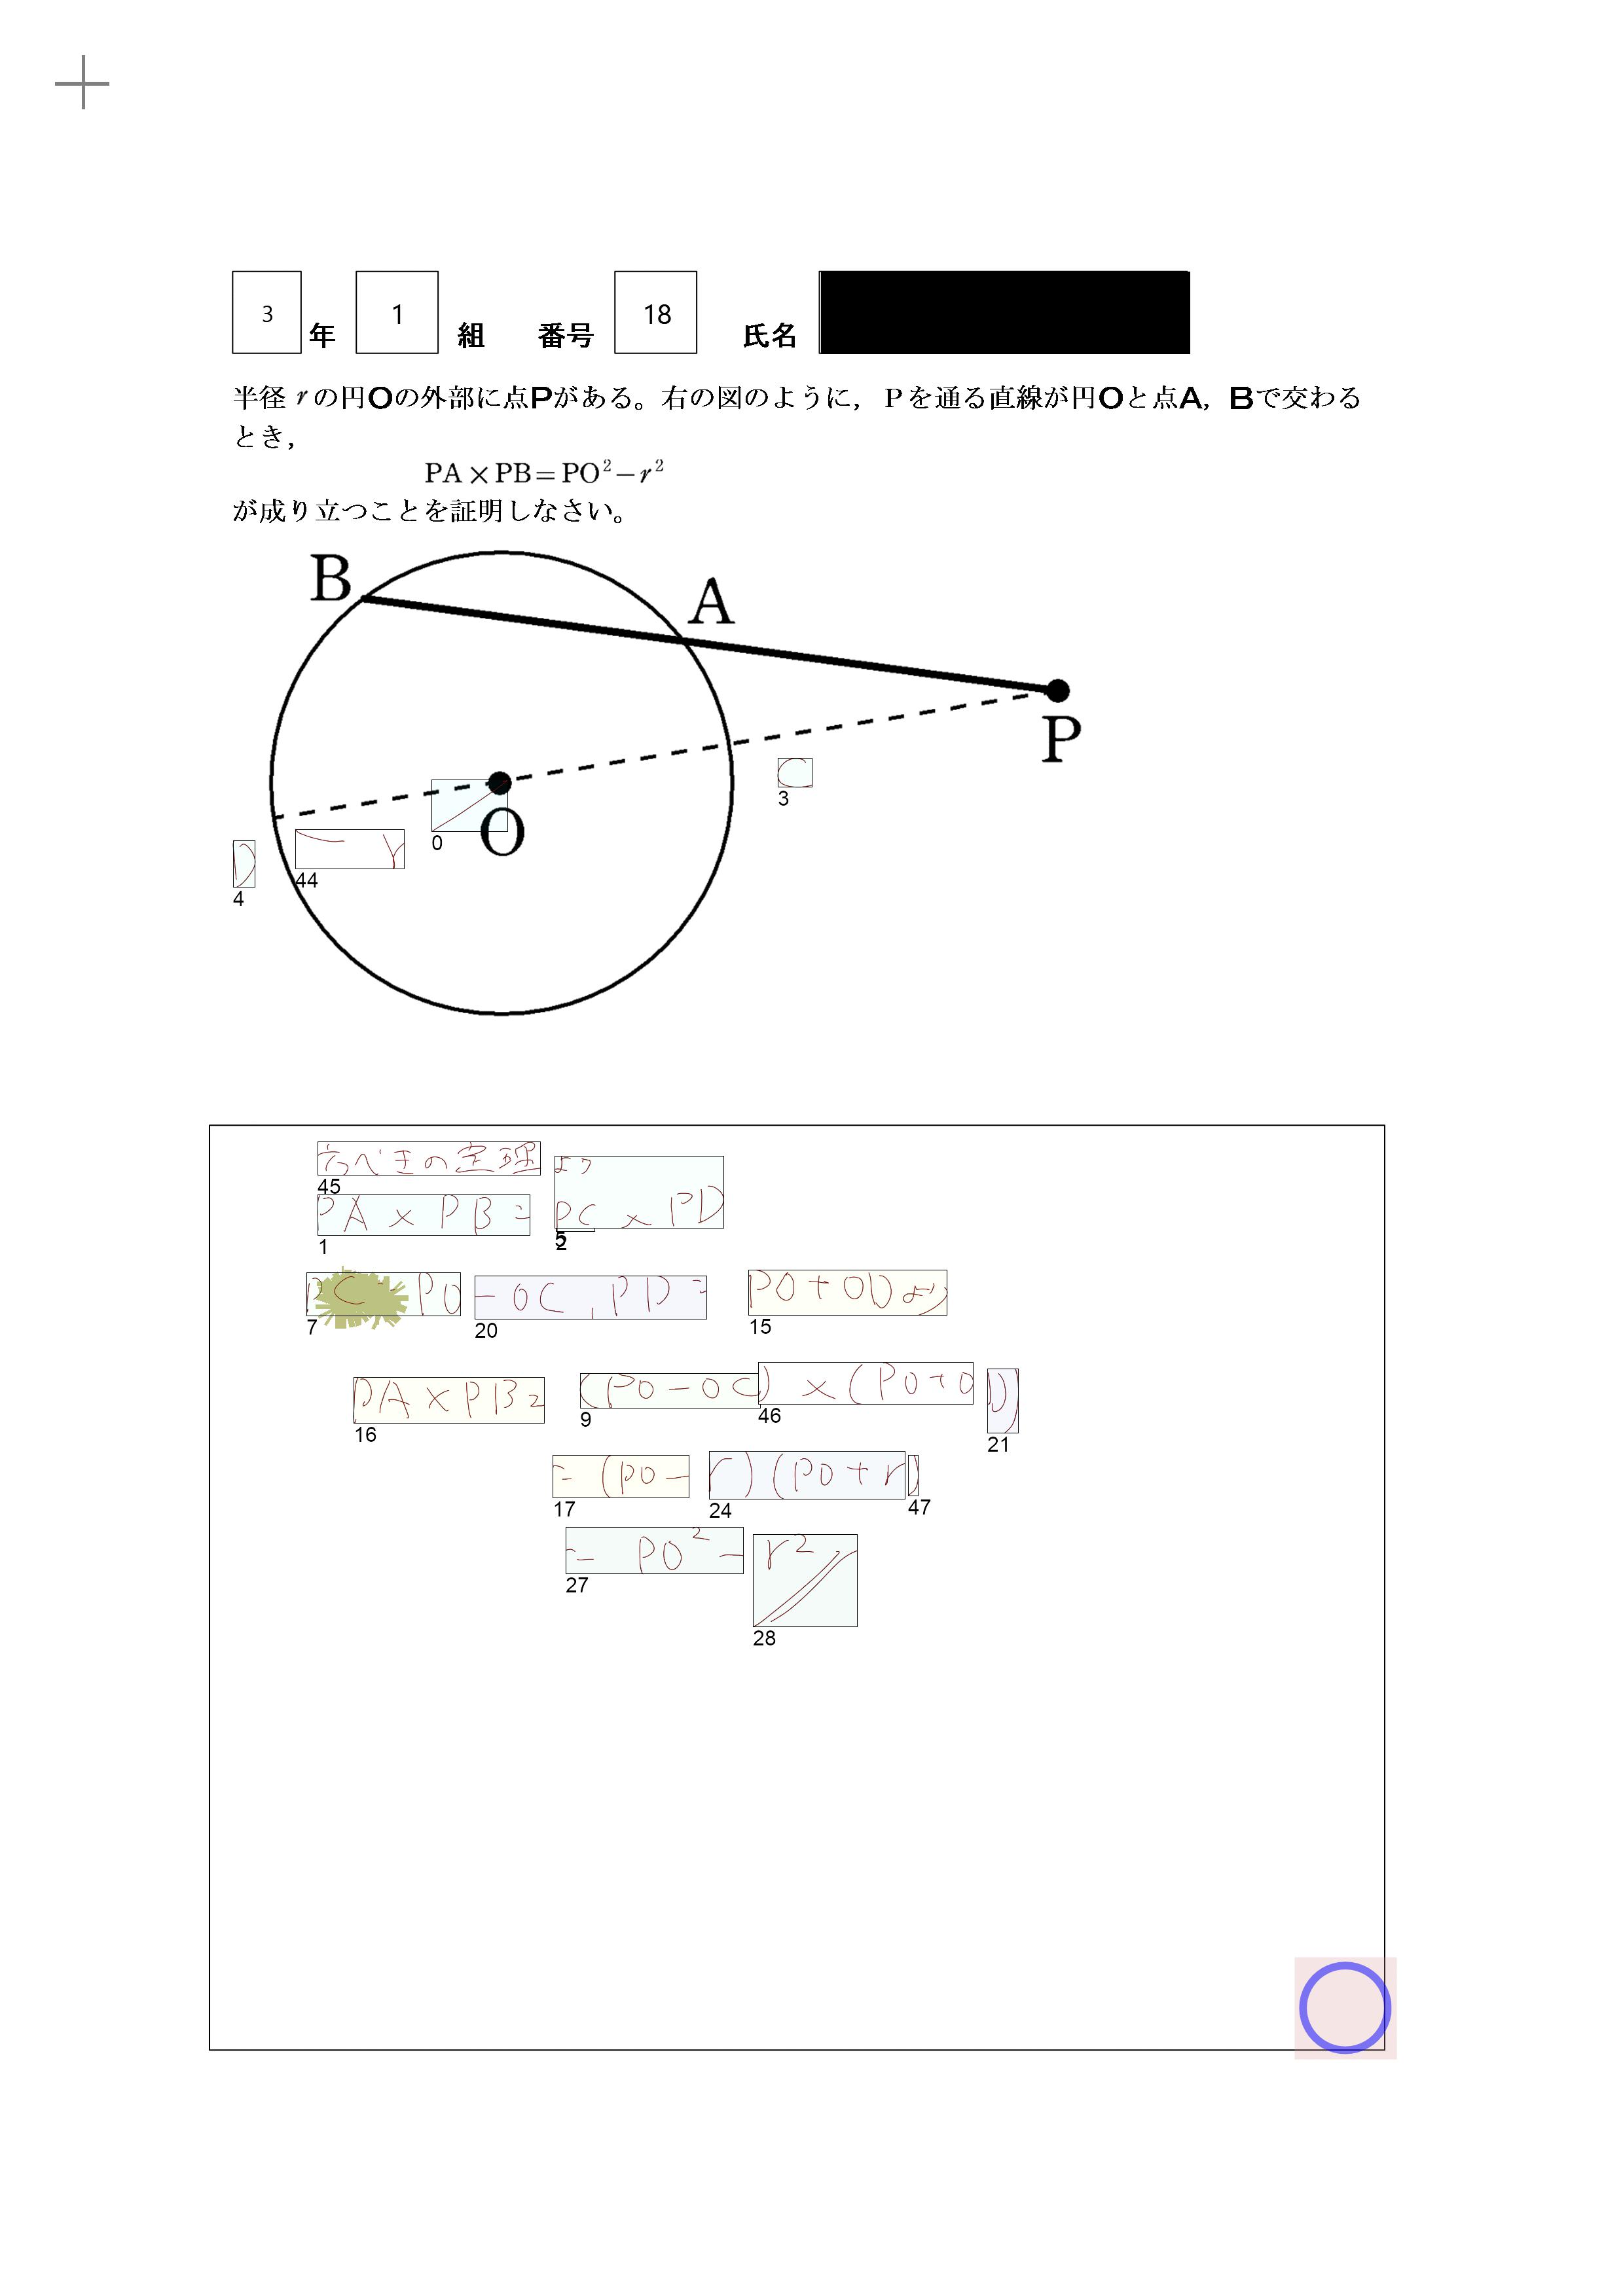 3 年 1 組 番号 18 氏名
半径 r の円Oの外部に点Pがある。右の図のように，Pを通る直線が円Oと点A，Bで交わる
とき，
PA×PB=PO²−r²
が成り立つことを証明しなさい。
B
A
P
C
3
O
0
r
44
D
4
方べきの定理 より
45
PA×PB= PC×PD
1 5 2
PC= PO -OC, PD= PO+ODより
7 20 15
PA×PB= (PO-OC)×(PO+OD)
16 9 46 21
=(PO-r)(PO+r)
17 24 47
= PO²-r²
27 28